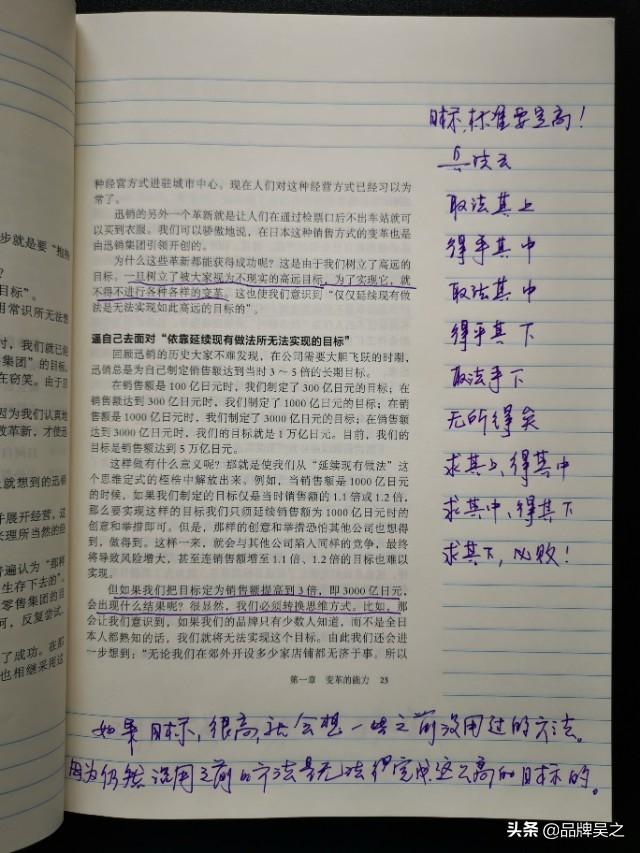 步就是要“抱持
？
目标”。
用常识所无法想
时，我们就已经
集团”的目标。
在窃笑。由于目
因为我们认真地
改革新，才使迅
就想到的迅销
并展开经营，这
米理所当然的经
普遍认为“那种
生存下去的”。
零售集团的目
何，反复尝试，
了成功。在那
也相继采用这
种经营方式进驻城市中心。现在人们对这种经营方式已经习以为
常了。
迅销的另外一个革新就是让人们在通过检票口后不出车站就可
以买到衣服。我们可以骄傲地说，在日本这种销售方式的变革也是
由迅销集团引领开创的。
为什么这些革新都能获得成功呢？这是由于我们树立了高远的
目标。一旦树立了被大家视为不现实的高远目标，为了实现它，就
不得不进行各种各样的变革。这也使我们意识到“仅仅延续现有做
法是无法实现如此高远的目标的”。
逼自己去面对“依靠延续现有做法所无法实现的目标”
回顾迅销的历史大家不难发现，在公司需要大胆飞跃的时期，
迅销总是为自己制定销售额达到当时3～5倍的长期目标。
在销售额是100亿日元时，我们制定了300亿日元的目标；在
销售额达到300亿日元时，我们制定了1000亿日元的目标；在销
售额是1000亿日元时，我们制定了3000亿日元的目标；在销售额
达到3000亿日元时，我们的目标就是1万亿日元。目前，我们的
目标是销售额达到5万亿日元。
这样做有什么意义呢？那就是使我们从“延续现有做法”这
个思维定式的桎梏中解放出来。例如，当销售额是1000亿日元
的时候，如果我们制定的目标仅是当时销售额的1.1倍或1.2倍，
那么要实现这样的目标我们只须延续销售额为1000亿日元时的
创意和举措即可。但是，那样的创意和举措恐怕其他公司也想得
到，做得到。这样一来，就会与其他公司陷入同样的竞争，最终
将导致风险增大，甚至连销售额增至1.1倍、1.2倍的目标也难以
实现。
但如果我们把目标定为销售额提高到3倍，即3000亿日元，
会出现什么结果呢？很显然，我们必须转换思维方式。比如，那
会让我们意识到，如果我们的品牌只有少数人知道，而不是全日
本人都熟知的话，我们就将无法实现这个目标。由此我们还会进
一步想到：“无论我们在郊外开设多少家店铺都无济于事。所以
第一章 变革的能力 25
目标，标准要定高！
兵法云
取法其上
得乎其中
取法其中
得乎其下
取法乎下
无所得矣
求其上，得其中
求其中，得其下
求其下，必败！
如果目标，很高，就会想一些之前没用过的方法。
因为仍然沿用之前的方法是无法得完成这么高的目标的。
头条@品牌吴之